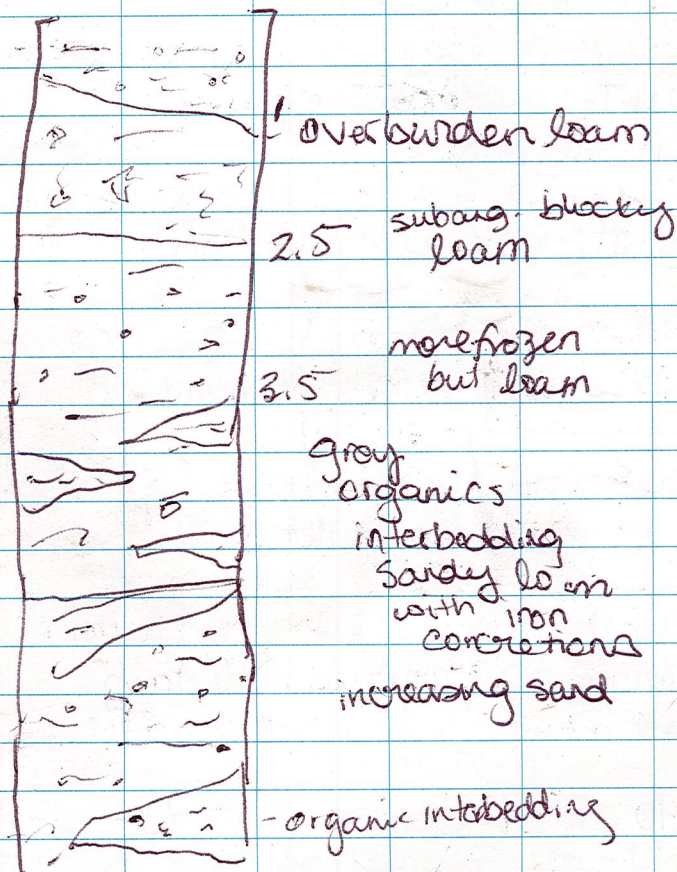 1' overburden loam
subang. blocky
2.5 loam
more frozen
3.5 but loam
gray
organics
interbedding
sandy loam
with iron
concretions
increasing sand
- organic interbedding